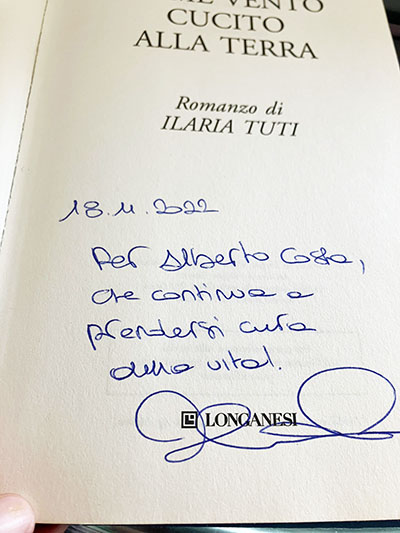 VENTO
CUCITO
ALLA TERRA
Romanzo di
ILARIA TUTI
18.11.2022
Per Alberto Costa,
che continua a
prendersi cura
della vita!.
LONGANESI